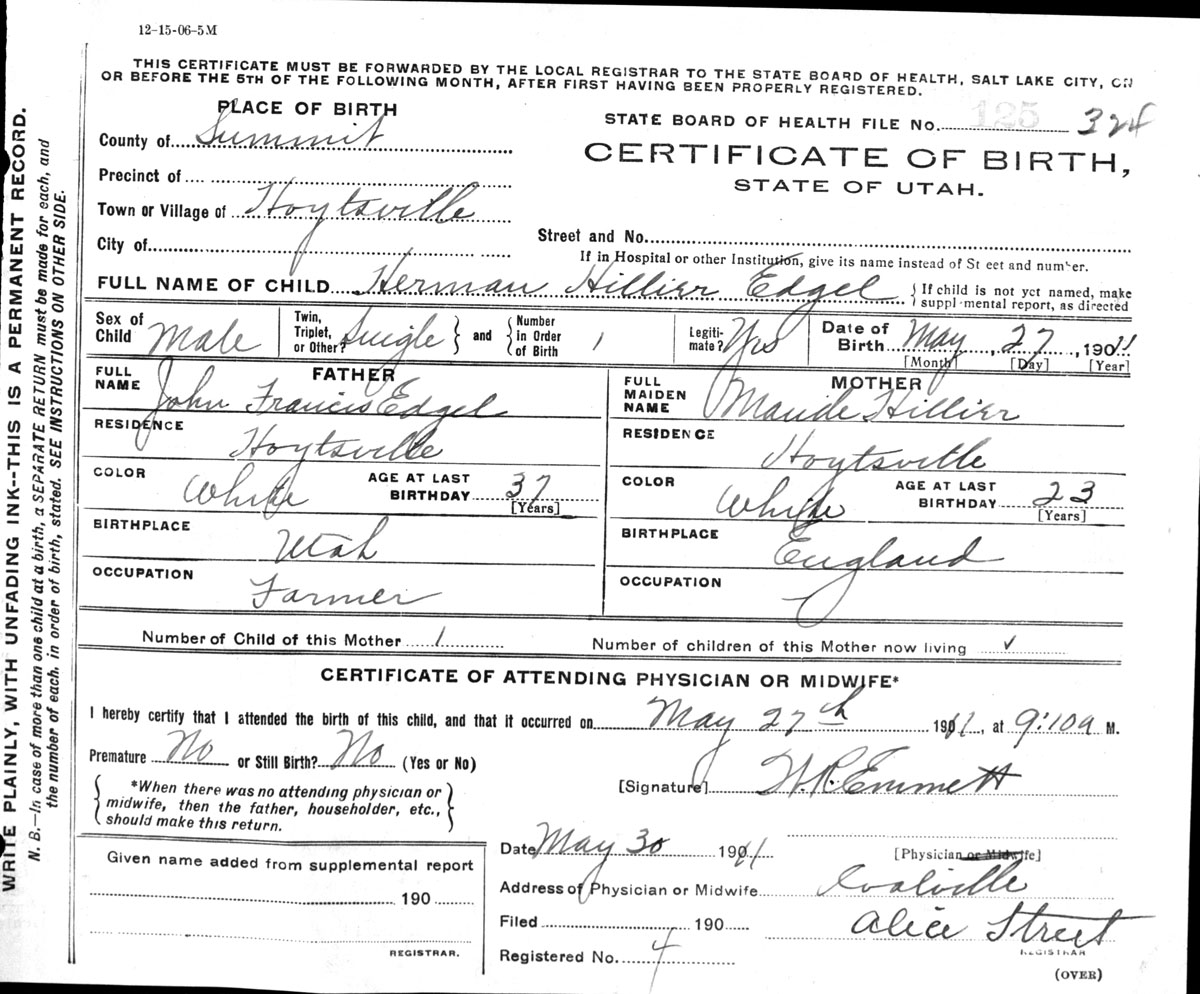 12-15-06-5M
THIS CERTIFICATE MUST BE FORWARDED BY THE LOCAL REGISTRAR TO THE STATE BOARD OF HEALTH, SALT LAKE CITY, ON
OR BEFORE THE 5TH OF THE FOLLOWING MONTH, AFTER FIRST HAVING BEEN PROPERLY REGISTERED.
PLACE OF BIRTH
County of Summit
Precinct of
Town or Village of Hoytsville
City of
STATE BOARD OF HEALTH FILE No. 125 324
CERTIFICATE OF BIRTH,
STATE OF UTAH.
Street and No.
If in Hospital or other Institution, give its name instead of St eet and number.
FULL NAME OF CHILD Herman Hillier Edgel
If child is not yet named, make
suppl mental report, as directed
Sex of Child Male
Twin, Triplet, or Other? Single and Number in Order of Birth 1
Legiti-mate? Yes
Date of Birth May, 27, 1911
[Month] [Day] [Year]
FATHER
FULL NAME John Francis Edgel
RESIDENCE Hoytsville
COLOR White AGE AT LAST BIRTHDAY 37
[Years]
BIRTHPLACE Utah
OCCUPATION Farmer
MOTHER
FULL MAIDEN NAME Maude Hillier
RESIDENCE Hoytsville
COLOR White AGE AT LAST BIRTHDAY 23
[Years]
BIRTHPLACE England
OCCUPATION
Number of Child of this Mother 1 Number of children of this Mother now living
CERTIFICATE OF ATTENDING PHYSICIAN OR MIDWIFE*
I hereby certify that I attended the birth of this child, and that it occurred on May 27th 1911, at 9:10a M.
Premature No or Still Birth? No (Yes or No)
*When there was no attending physician or
midwife, then the father, householder, etc.,
should make this return.
[Signature] Emmett
Date May 30 1911
[Physician or Midwife]
Address of Physician or Midwife Coalville
Filed 190
Alice Street
REGISTRAR
Registered No. 4
(OVER)
Given name added from supplemental report
190
REGISTRAR.
WRITE PLAINLY, WITH UNFADING INK--THIS IS A PERMANENT RECORD.
N. B.—In case of more than one child at a birth, a SEPARATE RETURN must be made for each, and
the number of each, in order of birth, stated. SEE INSTRUCTIONS ON OTHER SIDE.